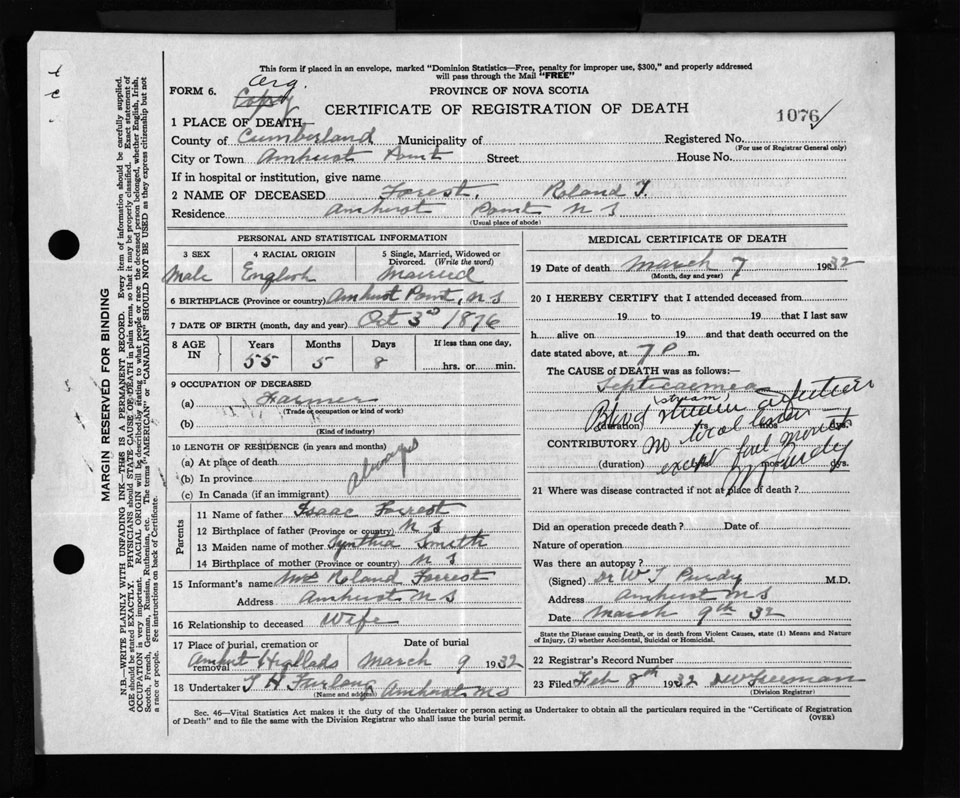 This form if placed in an envelope, marked "Dominion Statistics—Free, penalty for improper use, $300," and properly addressed
will pass through the Mail "FREE"
FORM 6.
Copy
PROVINCE OF NOVA SCOTIA
CERTIFICATE OF REGISTRATION OF DEATH
1076
1 PLACE OF DEATH
County of Cumberland Municipality of Registered No.
(For use of Registrar General only)
City or Town Amhurst Point Street House No.
If in hospital or institution, give name
2 NAME OF DECEASED Forest, Roland T.
Residence Amhurst Point N S
(Usual place of abode)
PERSONAL AND STATISTICAL INFORMATION
3 SEX 4 RACIAL ORIGIN 5 Single, Married, Widowed or
Divorced. (Write the word)
Male English Married
6 BIRTHPLACE (Province or country) Amhurst Point, N S
7 DATE OF BIRTH (month, day and year) Oct 3rd 1876
8 AGE IN Years Months Days If less than one day,
55 5 8 hrs. or min.
9 OCCUPATION OF DECEASED
(a) Farmer
(Trade or occupation or kind of work)
(b)
(Kind of industry)
10 LENGTH OF RESIDENCE (in years and months)
(a) At place of death
(b) In province always
(c) In Canada (if an immigrant)
Parents
11 Name of father Isaac Forrest
12 Birthplace of father (Province or country) N S
13 Maiden name of mother Cynthia Smith
14 Birthplace of mother (Province or country) N S
15 Informant's name Mrs Roland Forrest
Address Amhurst N S
16 Relationship to deceased Wife
17 Place of burial, cremation or removal Date of burial
Amhurst Highlads March 9 1932
18 Undertaker T H Furlong Amhurst N S
(Name and address)
MEDICAL CERTIFICATE OF DEATH
19 Date of death March 7 1932
(Month, day and year)
20 I HEREBY CERTIFY that I attended deceased from
19 to 19 that I last saw
h alive on 19 and that death occurred on
date stated above, at 7 P m.
The CAUSE of DEATH was as follows:—
Septicaemea
(stream)
Blood infection
(duration) yrs. mos. dys.
No local lesion
CONTRIBUTORY except foul mouth
(duration) yrs. mos. dys.
Purdy
21 Where was disease contracted if not at place of death?
Did an operation precede death? Date of
Nature of operation
Was there an autopsy?
(Signed) Dr W T Purdy M.D.
Address Amhurst N S
Date March 9th 32
State the Disease causing Death, or in death from Violent Causes, state (1) Means and Nature
of Injury, (2) whether Accidental, Suicidal or Homicidal.
22 Registrar's Record Number
23 Filed Feb 8th 1932 Freeman
(Division Registrar)
Sec. 46—Vital Statistics Act makes it the duty of the Undertaker or person acting as Undertaker to obtain all the particulars required in the "Certificate of Registration
of Death" and to file the same with the Division Registrar who shall issue the burial permit.
(OVER)
MARGIN RESERVED FOR BINDING
N.B.—WRITE PLAINLY WITH UNFADING INK—THIS IS A PERMANENT RECORD. Every item of information should be carefully supplied.
AGE should be stated EXACTLY. PHYSICIANS should STATE CAUSE OF DEATH in plain terms, so that it may be properly classified. Exact statement of
OCCUPATION is very important. RACIAL ORIGIN will be described by stating to what people or race the deceased person belonged, whether English, Irish,
Scotch, French, German, Russian, Ruthenian, etc. The terms "AMERICAN" or "CANADIAN" SHOULD NOT BE USED as they express citizenship but not
a race or people. See instructions on back of Certificate.